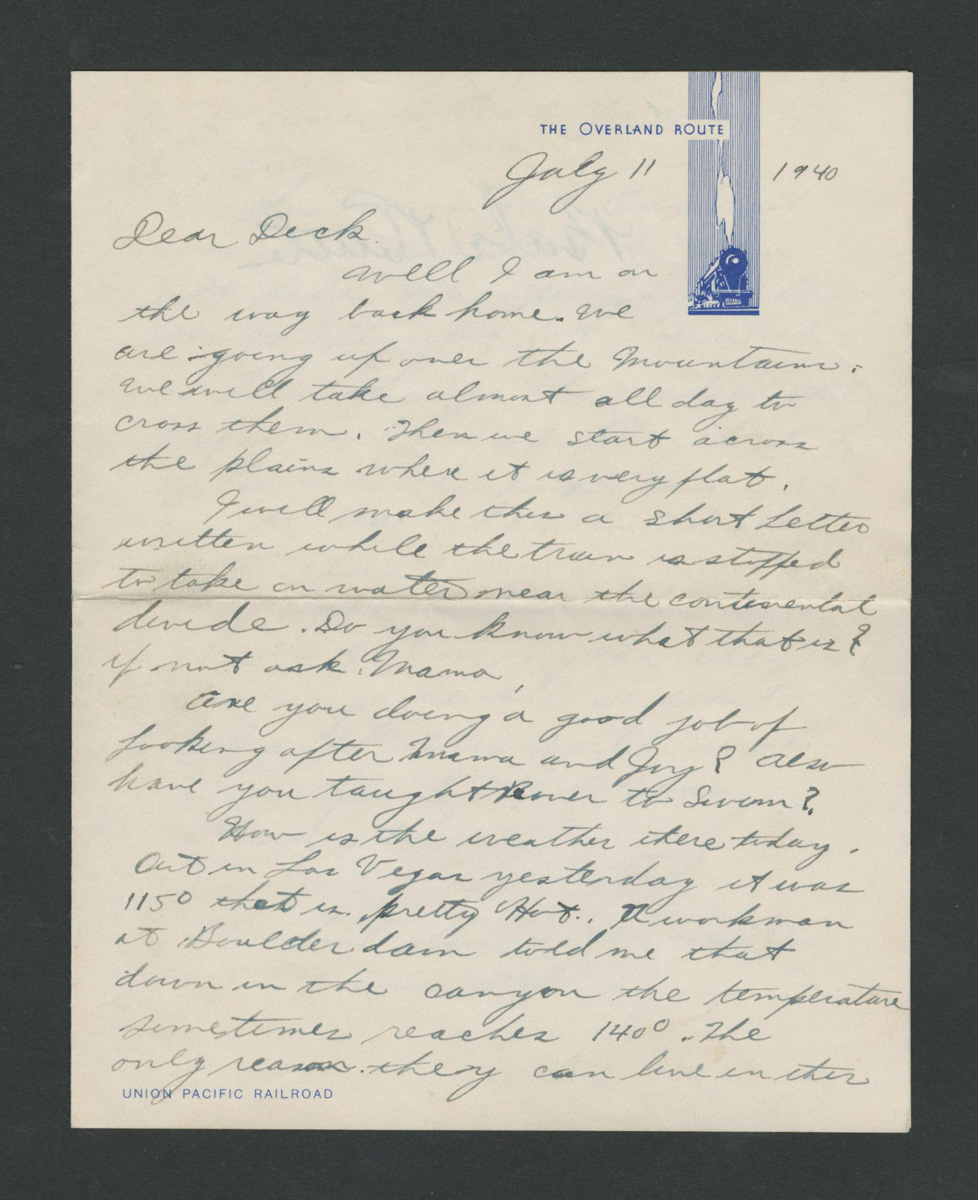 THE OVERLAND ROUTE
July 11 1940
Dear Deck.
Well I am on
the way back home. We
are going up over the Mountains.
We will take almost all day to
cross them. Then we start across
the plains where it is very flat.
I will make this a short letter
written while the train is stopped
to take on water near the continental
divide. Do you know what that is?
if not ask Mama,
Are you doing a good job of
looking after Mama and Joy? Also
have you taught Rover to Swim?
How is the weather there today.
Out in Las Vegas yesterday it was
115° that is pretty Hot. A workman
at Boulder dam told me that
down in the canyon the temperature
sometimes reaches 140°. The
only reason they can live in this
UNION PACIFIC RAILROAD